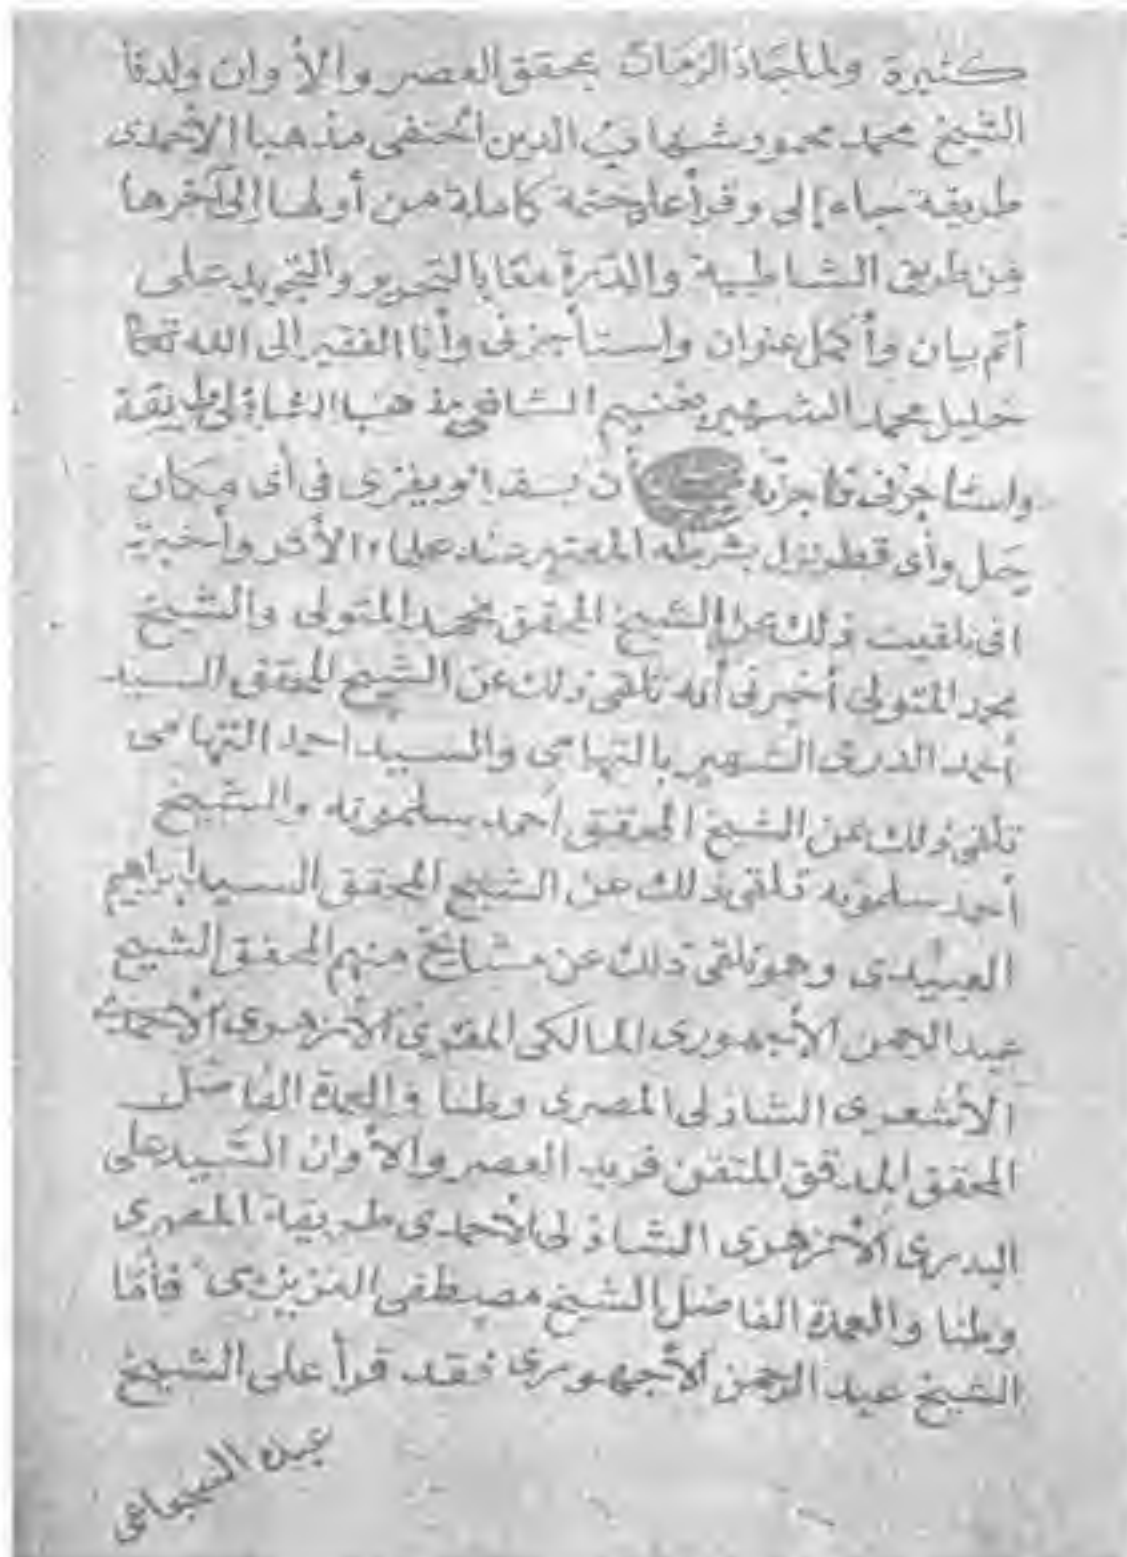 كثيرة ولما جاد الزمان بمحقق العصر والأوان ولدنا
الشيخ محمد محمود شهاب الدين الحنفى مذهبا الأحمدى
طريقة جاء إلى وقرأ على ختمة كاملة من أولها إلى آخرها
من طريق الشاطبية والدرة معا بالتحرير والتجويد على
أتم بيان وأكمل عنوان واستأجزنى وأنا الفقير إلى الله تعالى
خليل محمد الشهير بغنيم الشافعى مذهبا الشاذلى طريقة
واستاجزنى فاجزته أن يقرا ويقرى فى أى مكان
حل وأى قطر نزل بشرطه المعتبر عند علماء الأثر وأخبرته
انى تلقيت ذلك عن الشيخ المحقق محمد المتولى والشيخ
محمد المتولى أخبرنى أنه تلقى ذلك عن الشيخ المحقق السيد
أحمد الدرى الشهير بالتهامى والسيد احمد التهامى
تلقى ذلك عن الشيخ المحقق احمد سلمونه والشيخ
أحمد سلمونه تلقى ذلك عن الشيخ المحقق السيد ابراهيم
العبيدى وهو تلقى ذلك عن مشايخ منهم المحقق الشيخ
عبد الرحمن الأجهورى المالكى المقرى الأزهرى الأحمدى
الأشعرى الشاذلى المصرى وطنا والعمدة الفاضل
المحقق المدقق المتقن فريد العصر والأوان السيد على
البدرى الأزهرى الشاذلى الأحمدى طريقة المصرى
وطنا والعمدة الفاضل الشيخ مصطفى العزيزى فأما
الشيخ عبد الرحمن الأجهورى فقد قرأ على الشيخ
عبده السجاعى